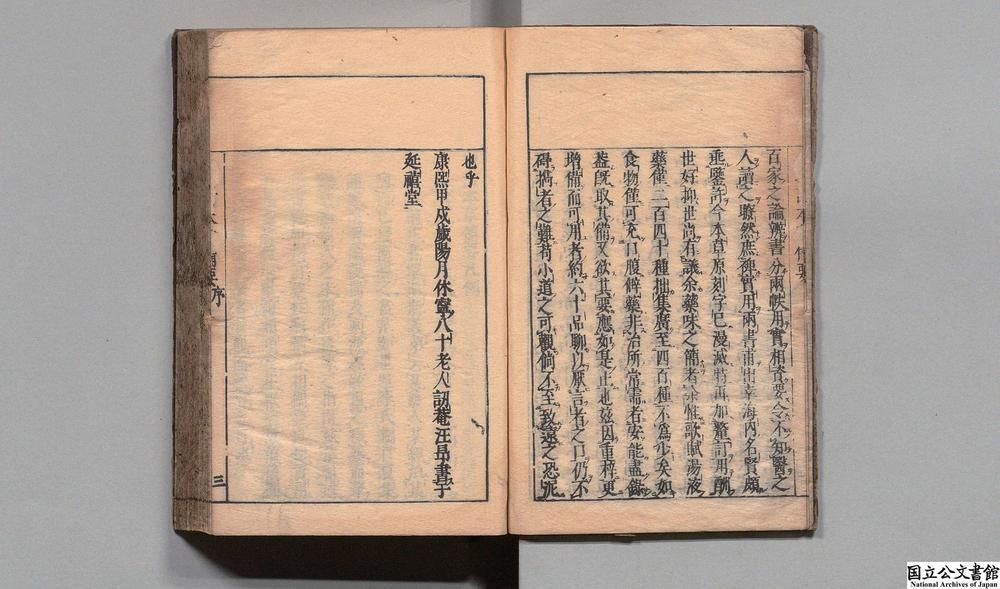 百家之論辨書分兩帙用實相資要令不知醫之
人讀之瞭然庶裨實用兩書甫出幸海內名賢頗
垂鑒許今本草原刻字已漫滅特再加釐訂用酬
世好抑世尚有議余藥味之簡者余惟歌賦湯液
藥僅二百四十種拙集廣至四百種不為少矣如
食物僅可充口腹僻藥非治所常需者安能盡錄
葢既取其備又欲其要應如是止也茲因重梓更
增備而可用者約六十品聊以厭言者之口仍不
碍攜者之艱苟小道之可觀倘不至致遠之恐泥
也乎
康熙甲戌歲陽月休寧八十老人訒菴汪昂書于
延禧堂
備要 序
三
国立公文書館
National Archives of Japan